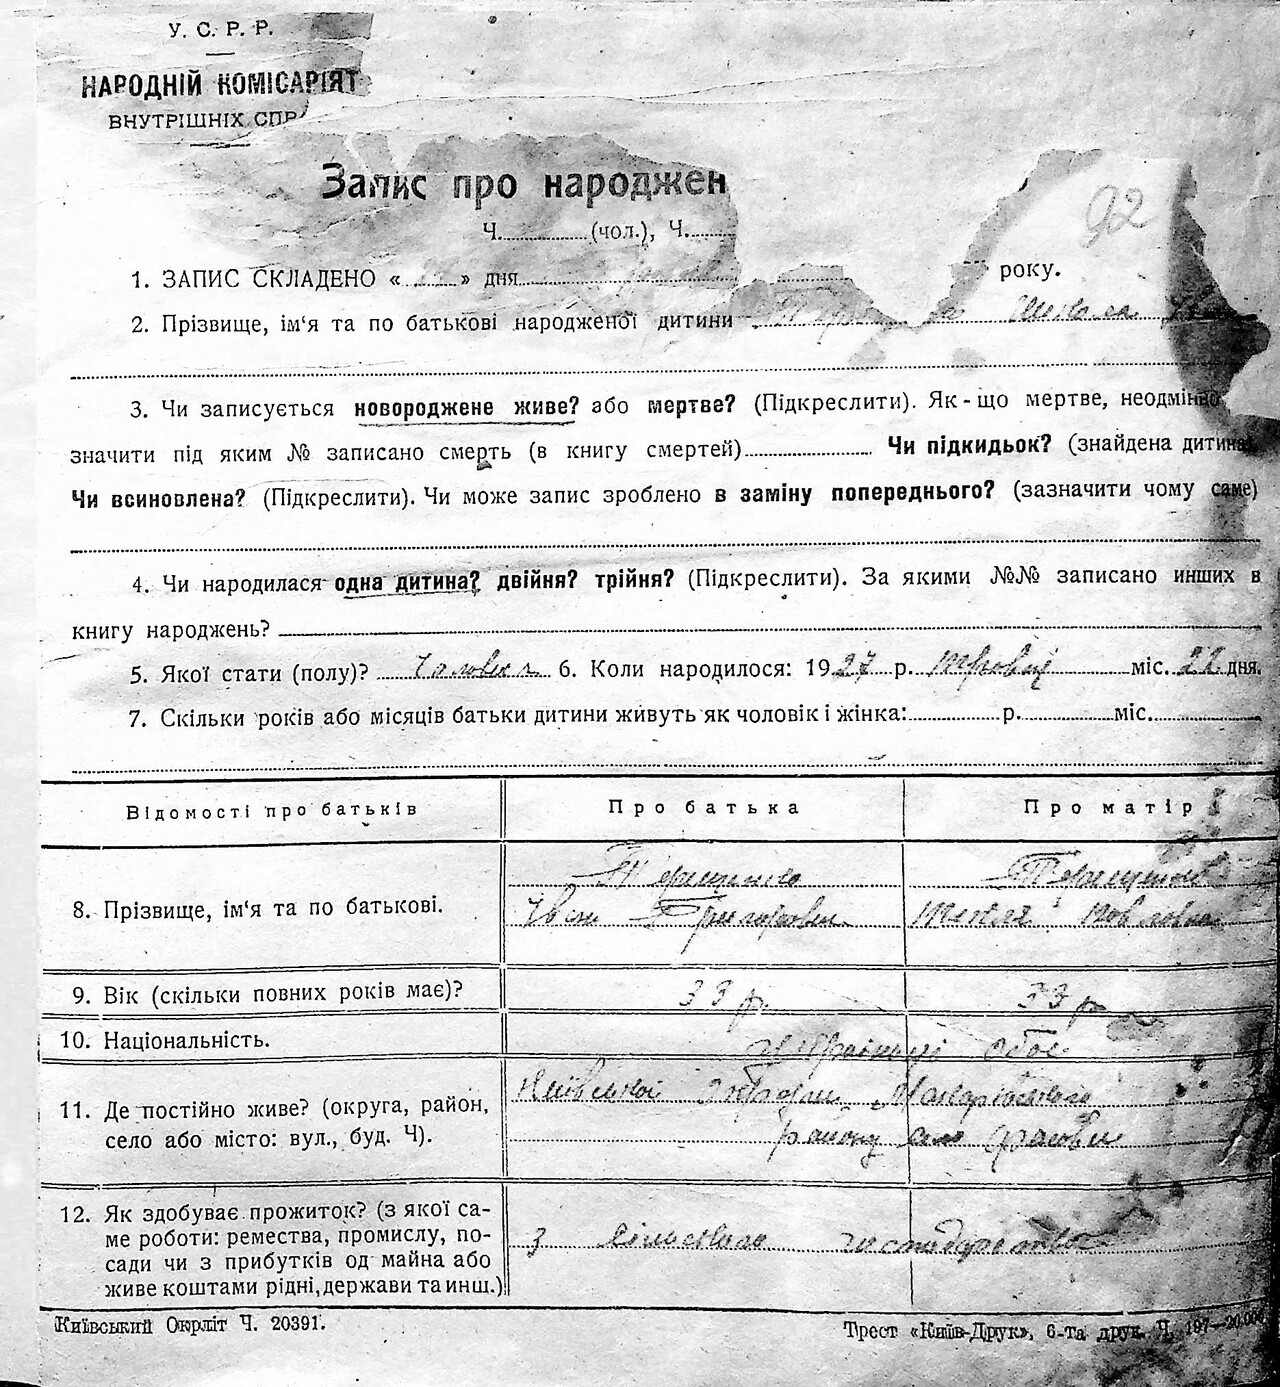 У. С. Р. Р.
НАРОДНІЙ КОМІСАРІЯТ
ВНУТРІШНІХ СПР
Запис про народжен
92
Ч. (чол.), Ч.
1. ЗАПИС СКЛАДЕНО « » дня року.
2. Прізвище, ім‘я та по батькові народженої дитини
3. Чи записується новороджене живе? або мертве? (Підкреслити). Як-що мертве, неодмінно
значити під яким № записано смерть (в книгу смертей) Чи підкидьок? (знайдена дитина)
Чи всиновлена? (Підкреслити). Чи може запис зроблено в заміну попереднього? (зазначити чому саме)
4. Чи народилася одна дитина? двійня? трійня? (Підкреслити). За якими №№ записано инших в
книгу народжень?
5. Якої стати (полу)? 6. Коли народилося: 1927 р. міс. 22 дня.
7. Скільки років або місяців батьки дитини живуть як чоловік і жінка: р. міс.
Відомості про батьків Про батька Про матір
8. Прізвище, ім‘я та по батькові. Терещенко Терещенко
Іван Григорович Текля Повловна
9. Вік (скільки повних років має)? 33 р. 33 р
10. Національність. українці обоє
11. Де постійно живе? (округа, район, Київської округи Макарівського
село або місто: вул., буд. Ч). району село
12. Як здобуває прожиток? (з якої са-
ме роботи: ремества, промислу, по- з сільського господарства
сади чи з прибутків од майна або
живе коштами рідні, держави та инш.)
Київський Окрліт Ч. 20391.
Трест «Київ-Друк», 6-та друк. Ч. 197—20.000